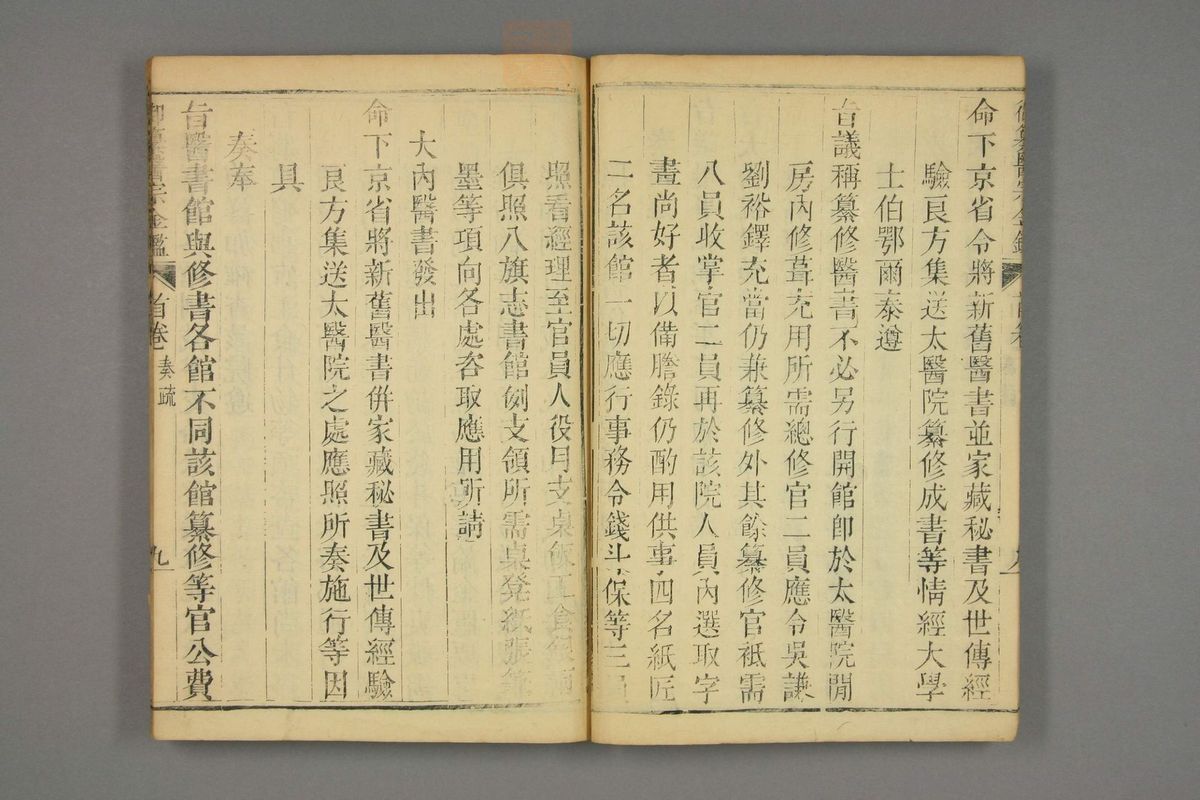 命下京省令將新舊醫書並家藏秘書及世傳經
驗良方集送太醫院纂修成書等情經大學
士伯鄂爾泰遵
旨議稱纂修醫書不必另行開館即於太醫院閒
房內修葺充用所需總修官二員應令吳謙
劉裕鐸充當仍兼纂修外其餘纂修官祗需
八員收掌官二員再於該院人員內選取字
畫尚好者以備謄錄仍酌用供事四名紙匠
二名該館一切應行事務令錢斗保等三員
照看經理至官員人役月支桌飯工食
俱照八旗志書館例支領所需桌凳紙張筆
墨等項向各處咨取應用所請
大內醫書發出
命下京省將新舊醫書併家藏秘書及世傳經驗
良方集送太醫院之處應照所奏施行等因
具
奏奉
旨醫書館與修書各館不同該館纂修等官公費
御纂醫宗金鑑 首卷 奏疏 九